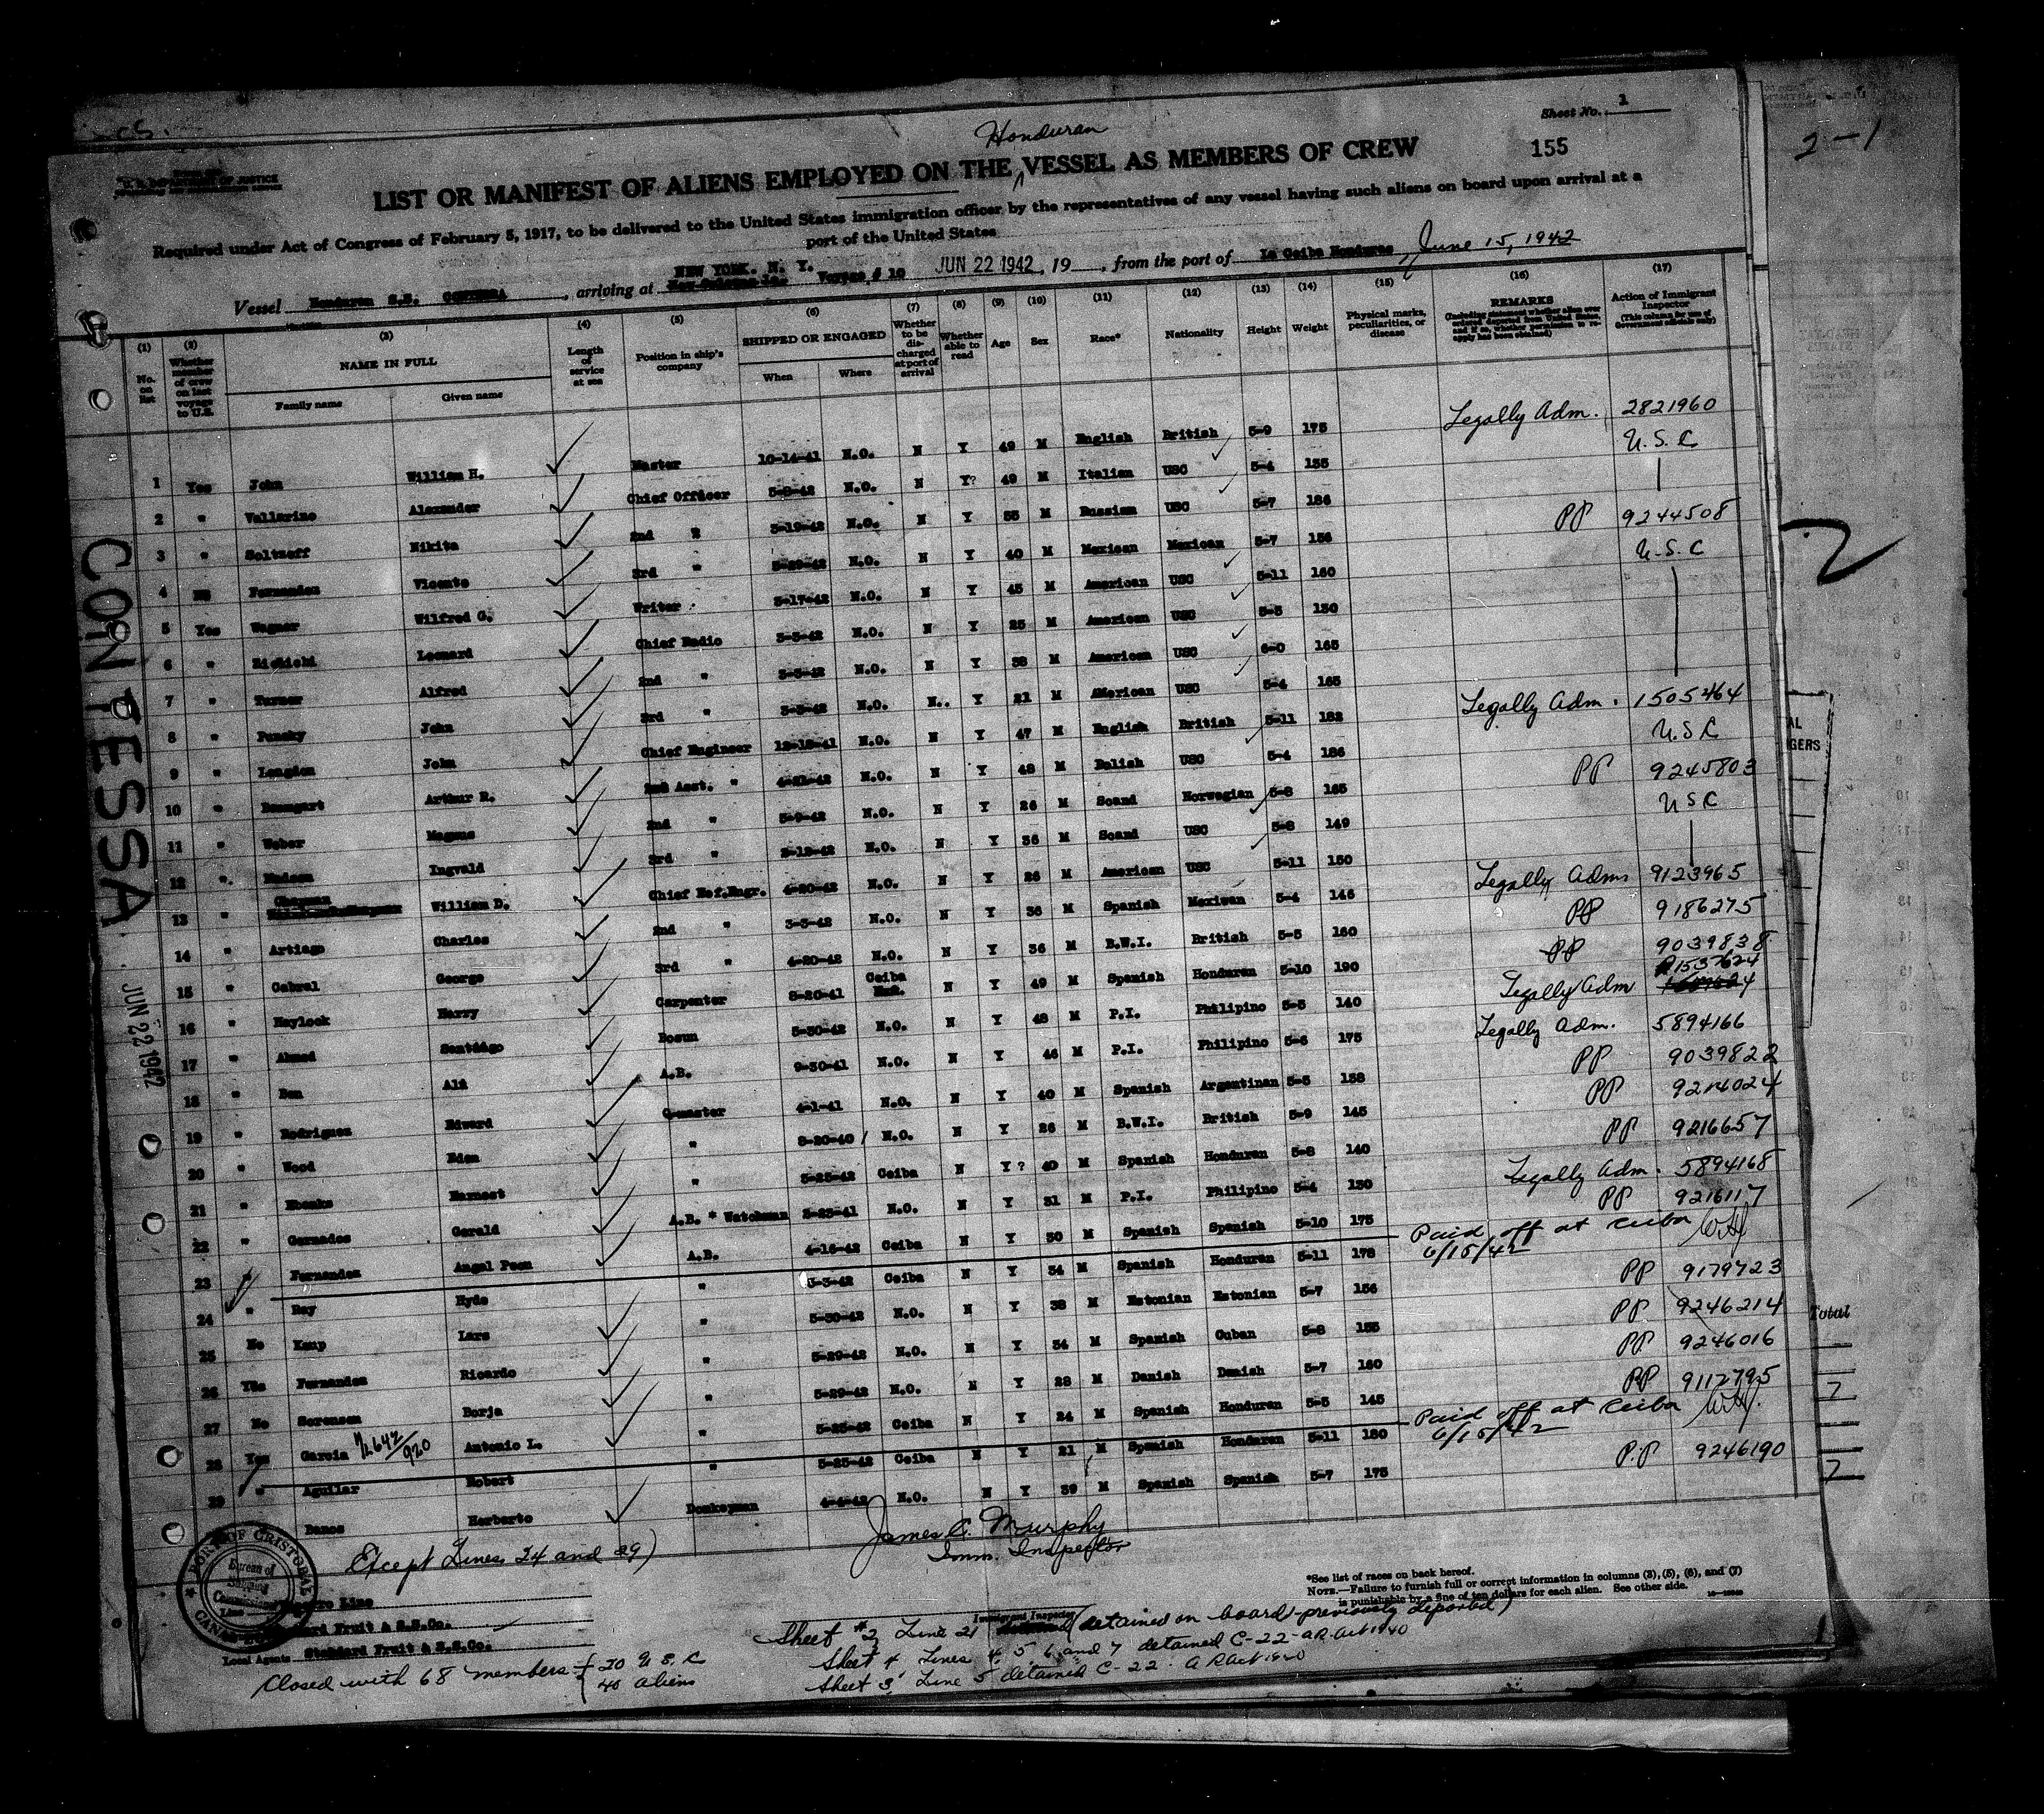 Sheet No. 1
Honduran
LIST OR MANIFEST OF ALIENS EMPLOYED ON THE VESSEL AS MEMBERS OF CREW
155
2-1
U. S. DEPARTMENT OF JUSTICE
Required under Act of Congress of February 5, 1917, to be delivered to the United States immigration officer by the representatives of any vessel having such aliens on board upon arrival at a
port of the United States
NEW YORK. N. Y.
Vessel Honduran S.S. CONTESSA, arriving at New Orleans La. Voyage # 10 JUN 22 1942, 19, from the port of La Ceiba Honduras June 15, 1942
(1) (2) (3) (4) (5) (6) (7) (8) (9) (10) (11) (12) (13) (14) (15) (16) (17)
No. on list
Whether member of crew on last voyage to U.S.
NAME IN FULL
Family name
Given name
Length of service at sea
Position in ship's company
SHIPPED OR ENGAGED
When
Where
Whether to be discharged at port of arrival
Whether able to read
Age
Sex
Race*
Nationality
Height
Weight
Physical marks, peculiarities, or disease
REMARKS
(Including statement whether alien ever
Action of Immigrant Inspector
(This column for use of Government officials only)
1 Yes John William H. Master 10-14-41 N.O. N Y 49 M English British 5-9 175 Legally Adm. 2821960
2 " Vallarino Alexander Chief Officer 5-8-42 N.O. N Y? 49 M Italian USC 5-4 155 U.S.C
3 " Soltzeff Nikita 2nd " 3-19-42 N.O. N Y 55 M Russian USC 5-7 186
4 No Fernandez Vicente 3rd " 5-29-42 N.O. N Y 40 M Mexican Mexican 5-7 156 PP 9244508
5 Yes Wagner Wilfred G. Writer 3-17-42 N.O. N Y 45 M American USC 5-11 160 U.S.C
6 " Leonard Chief Radio 3-3-42 N.O. N Y 25 M American USC 5-5 130
7 " Turner Alfred 2nd " 3-3-42 N.O. N Y 38 M American USC 6-0 165
8 " Punsky John 3rd " 3-3-42 N.O. N.. Y 21 M American USC 5-4 165
9 " Langdon John Chief Engineer 12-18-41 N.O. N Y 47 M English British 5-11 182 Legally Adm. 1505464
10 " Baumgart Arthur R. 2nd Asst. " 4-21-42 N.O. N Y 48 M Polish USC 5-4 186 U.S.C
11 " Weber Magnus 2nd " 5-9-42 N.O. N Y 26 M Scand Norwegian 5-8 165 PP 9245803
12 " Madsen Ingvald 3rd " 3-12-42 N.O. N Y 36 M Scand USC 5-8 149 U S C
13 " Chapman William D. Chief Ref.Engr. 4-20-42 N.O. N Y 26 M American USC 5-11 150
14 " Artiago Charles 2nd " 3-3-42 N.O. N Y 36 M Spanish Mexican 5-4 146 Legally Adm 9123965
15 " Cabral George 3rd " 4-20-42 N.O. N Y 36 M B.W.I. British 5-5 160 PP 9186275
16 " Haylock Harry Carpenter 8-20-41 Ceiba N Y 49 M Spanish Honduran 5-10 190 PP 9039838
17 " Ahmed Santiago Bosun 5-30-42 N.O. N Y 48 M P.I. Philipino 5-5 140 Legally Adm 1537624
18 " Ben Ali A.B. 9-30-41 N.O. N Y 46 M P.I. Philipino 5-6 175 Legally Adm. 5894166
19 " Rodriguez Edward Q-master 4-1-41 N.O. N Y 40 M Spanish Argentinan 5-5 158 PP 9039822
20 " Wood Eden " 8-20-40 N.O. N Y 26 M B.W.I. British 5-9 145 PP 9214024
21 " Ebanks Earnest " 5-25-42 Ceiba N Y? 40 M Spanish Honduran 5-8 140 PP 9216657
22 " Garnados Gerald A.B. * Watchman 3-23-41 N.O. N Y 31 M P.I. Philipino 5-4 130 Legally Adm. 5894168
23 " Fernandez Angel Pson A.B. 4-16-42 Ceiba N Y 30 M Spanish Spanish 5-10 175 PP 9216117
24 " Ray Hyde " 3-3-42 Ceiba N Y 34 M Spanish Honduran 5-11 178 Paid off at Ceiba 6/15/42
25 No Kemp Lars " 5-30-42 N.O. N Y 38 M Estonian Estonian 5-7 156 PP 9179723
26 Yes Fernandez Ricardo " 5-29-42 N.O. N Y 34 M Spanish Cuban 5-8 155 PP 9246214
27 No Sorensen Borja " 5-29-42 N.O. N Y 28 M Danish Danish 5-7 160 PP 9246016
28 Yes Garcia Antonio L. " 5-25-42 Ceiba N Y 24 M Spanish Honduran 5-5 145 PP 9112795
29 " Aguilar Robert " 5-25-42 Ceiba N Y 21 M Spanish Honduran 5-11 180 Paid off at Ceiba 6/15/42
Banos Herberto Donkeyman 4-4-42 N.O. N Y 39 M Spanish Spanish 5-7 175 P.P 9246190
CONTESSA
JUN 22 1942
2
Total
Except Lines 24 and 29)
James C. Murphy
Imm. Inspector
PORT OF CRISTOBAL
Bureau of Shipping Commissioner
Standard Fruit & S.S.Co.
Local Agents Standard Fruit & S.S.Co.
*See list of races on back hereof.
NOTE.—Failure to furnish full or correct information in columns (3), (5), (6), and (7)
is punishable by a fine of ten dollars for each alien. See other side.
Immigrant Inspector
Sheet #2 Line 21 (detained on board previously deported)
Sheet 4 Lines 4, 5, 6 and 7 detained C-22-AR-Act 1940
Sheet 3, Line 5 detained C-22. A R Act 1940
Closed with 68 members { 20 U S C
40 aliens